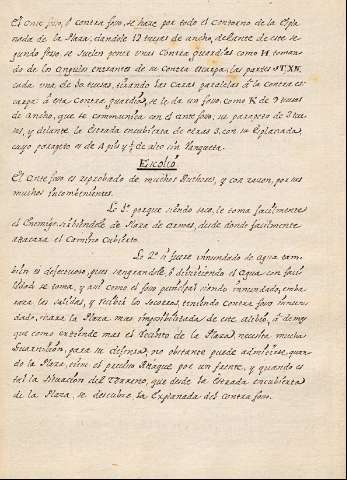 El Ante foso, ó contra foso, se hace por todo el contorno de la Espla
nada de la Plaza, dandole 12 tuesas de ancho, delante de este se
gundo foso se suelen poner unas Contra guardias como H toman
do de los angulos entrantes de su Contra escarpa las partes
cada una de 30 tuesas, tirando las Caras paralelas à la contra es
carpa: à esta Contra guardia, se le da un foso como K de 9 tuesas
de ancho, que se comunica con el ante foso, su parapeto de 3 tue
sas, y delante la Estrada encubierta de otras 3, con su Esplanada,
cuyo parapeto es de 4 pies y ½ de alto sin banqueta.
Escolio
El Ante foso es reprobado de muchos Authores, y con razon, por sus
muchos incombenientes.
Lo 1º porque siendo seco, le toma facilmente
el Enemigo sirbiendole de Plaza de armas, desde donde facilmente
atacara el Camino Cubierto.
Lo 2º si fuere innundado de agua tam
bien es defectuoso, pues sangrandole, ó divirtiendo el agua con faci
lidad se toma, y asi como el foso principal siendo innundado, emba
raza las salidas, y recivir los socorros, teniendo contra foso innun
dado, estara la Plaza mas imposibilitada de este alibio, à demas
que como extiende mas el Recinto de la Plaza, necesita mucha
Guarnicion, para su defensa, no obstante puede admitirse, quan
do la Plaza, tiene el preciso Ataque por un frente, y quando es
tal la situacion del Terreno, que desde la Estrada encubierta
de la Plaza, se descubre la Explanada del contra foso.